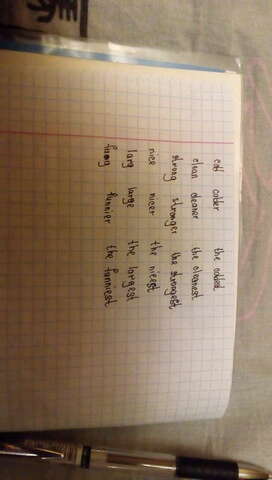 cold colder the coldest
clean cleaner the cleanest
strong stronger the strongest
nice nicer the nicest
larg large the largest
funny funnier the funniest